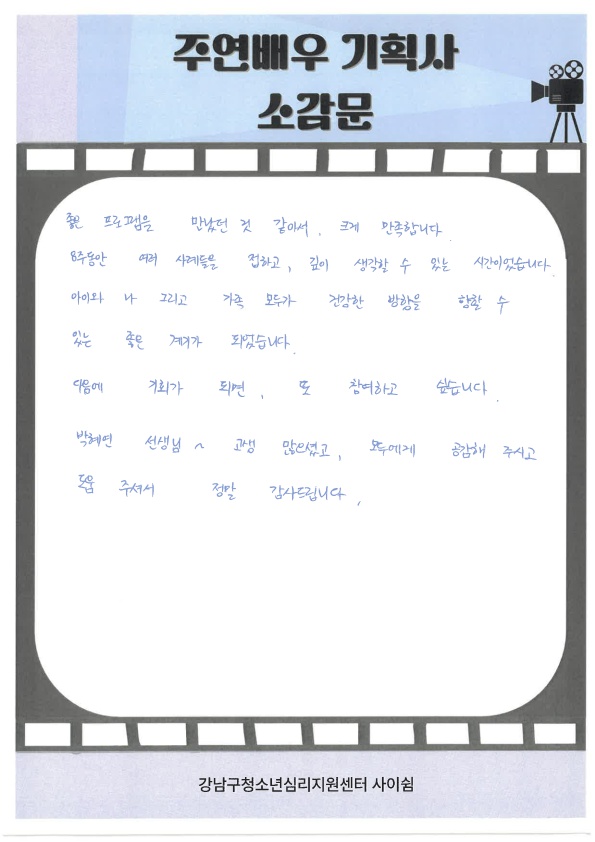 주연배우 기획사
소감문
좋은 프로그램을 만났던 것 같아서, 크게 만족합니다.
8주동안 여러 사례들을 접하고, 깊이 생각할 수 있는 시간이었습니다.
아이와 나 그리고 가족 모두가 건강한 방향을 향할 수
있는 좋은 계기가 되었습니다.
다음에 기회가 되면, 또 참여하고 싶습니다.
박혜연 선생님~ 고생 많으셨고, 모두에게 공감해 주시고
도움 주셔서 정말 감사드립니다.
강남구청소년심리지원센터 사이쉼